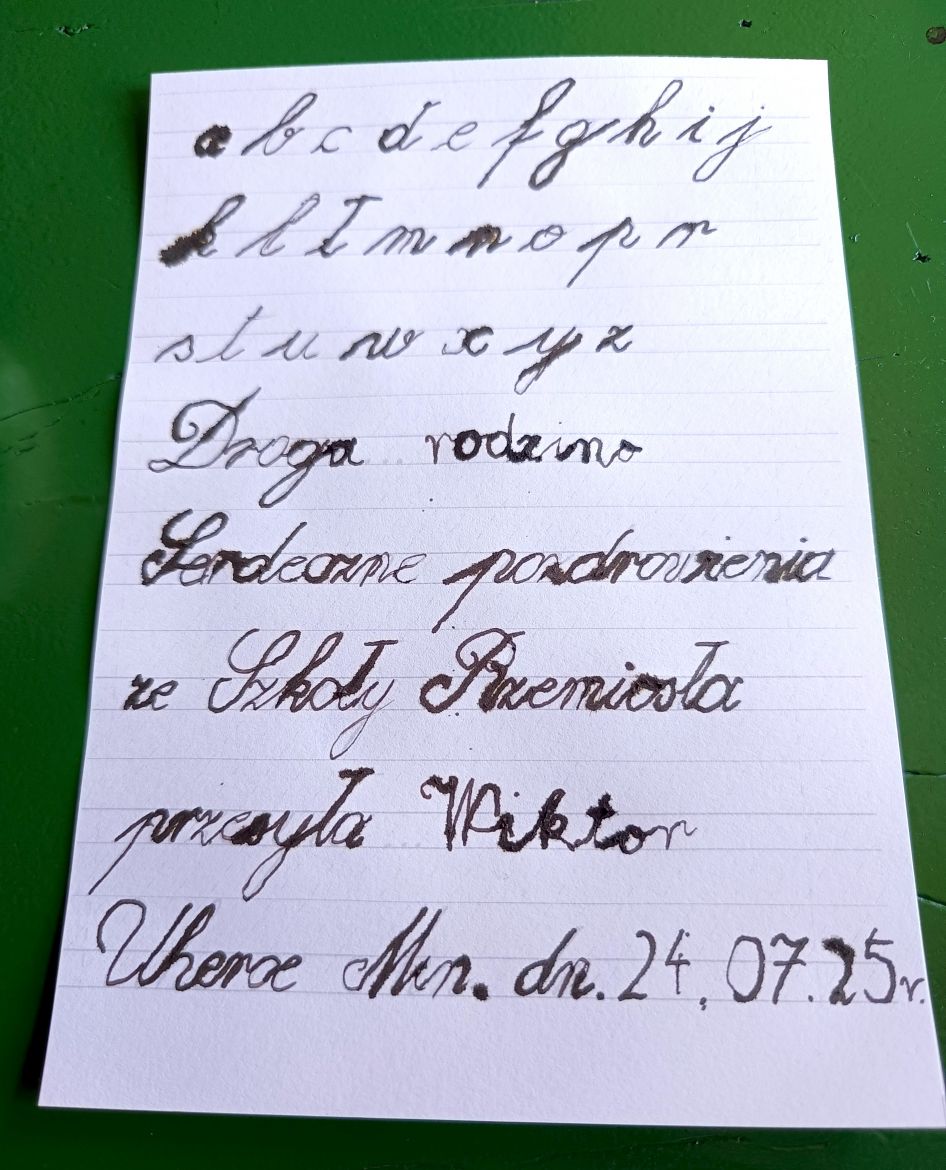 a b c d e f g h i j
k l ł m n o p r
s t u w x y z
Droga rodzino
Serdeczne pozdrowienia
ze Szkoły Rzemiosła
przesyła Wiktor
Uherce Min. dn. 24.07.25r.